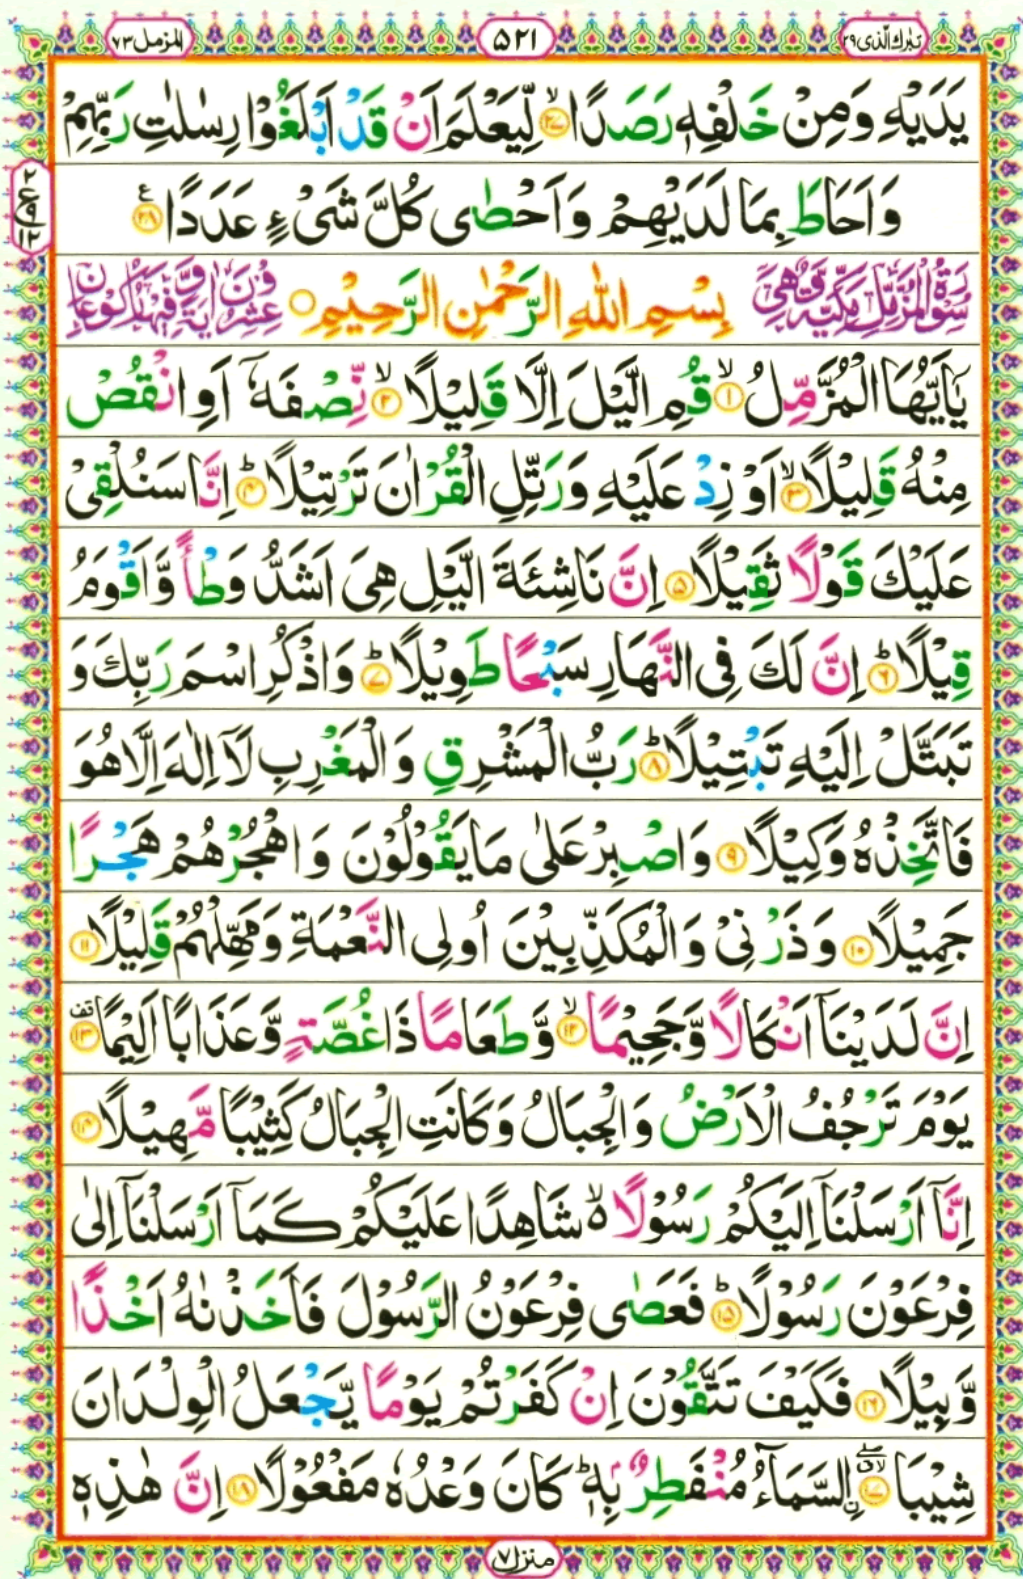 تبرك الذی ۲۹
۵۲۱
المزمل ۷۳
یَدَیْهِ وَمِنْ خَلْفِهٖ رَصَدًا ۙ۲۷ لِّیَعْلَمَ اَنْ قَدْ اَبْلَغُوْا رِسٰلٰتِ رَبِّهِمْ
وَاَحَاطَ بِمَا لَدَیْهِمْ وَاَحْصٰی كُلَّ شَیْءٍ عَدَدًا ۲۸ ع
۲
ع
۹
۱۲
سُوْرَةُ الْمُزَّمِّلِ مَكِّیَّةٌ وَّهِیَ
بِسْمِ اللهِ الرَّحْمٰنِ الرَّحِیْمِ
عِشْرُوْنَ اٰیَةً وَّفِیْهَا رُكُوْعَانِ
یٰۤاَیُّهَا الْمُزَّمِّلُ ۙ۱ قُمِ الَّیْلَ اِلَّا قَلِیْلًا ۙ۲ نِّصْفَهٗۤ اَوِ انْقُصْ
مِنْهُ قَلِیْلًا ۙ۳ اَوْ زِدْ عَلَیْهِ وَرَتِّلِ الْقُرْاٰنَ تَرْتِیْلًا ؕ۴ اِنَّا سَنُلْقِیْ
عَلَیْكَ قَوْلًا ثَقِیْلًا ۵ اِنَّ نَاشِئَةَ الَّیْلِ هِیَ اَشَدُّ وَطْاً وَّاَقْوَمُ
قِیْلًا ؕ۶ اِنَّ لَكَ فِی النَّهَارِ سَبْحًا طَوِیْلًا ؕ۷ وَاذْكُرِ اسْمَ رَبِّكَ وَ
تَبَتَّلْ اِلَیْهِ تَبْتِیْلًا ؕ۸ رَبُّ الْمَشْرِقِ وَالْمَغْرِبِ لَاۤ اِلٰهَ اِلَّا هُوَ
فَاتَّخِذْهُ وَكِیْلًا ۹ وَاصْبِرْ عَلٰی مَا یَقُوْلُوْنَ وَاهْجُرْهُمْ هَجْرًا
جَمِیْلًا ۱۰ وَذَرْنِیْ وَالْمُكَذِّبِیْنَ اُولِی النَّعْمَةِ وَمَهِّلْهُمْ قَلِیْلًا ۱۱
اِنَّ لَدَیْنَاۤ اَنْكَالًا وَّجَحِیْمًا ۙ۱۲ وَّطَعَامًا ذَا غُصَّةٍ وَّعَذَابًا اَلِیْمًا قف ۱۳
یَوْمَ تَرْجُفُ الْاَرْضُ وَالْجِبَالُ وَكَانَتِ الْجِبَالُ كَثِیْبًا مَّهِیْلًا ۱۴
اِنَّاۤ اَرْسَلْنَاۤ اِلَیْكُمْ رَسُوْلًا ۙ۬ شَاهِدًا عَلَیْكُمْ كَمَاۤ اَرْسَلْنَاۤ اِلٰی
فِرْعَوْنَ رَسُوْلًا ؕ۱۵ فَعَصٰی فِرْعَوْنُ الرَّسُوْلَ فَاَخَذْنٰهُ اَخْذًا
وَّبِیْلًا ۱۶ فَكَیْفَ تَتَّقُوْنَ اِنْ كَفَرْتُمْ یَوْمًا یَّجْعَلُ الْوِلْدَانَ
شِیْبَا ۱۷ ۟ۙالسَّمَآءُ مُنْفَطِرٌۢ بِهٖ ؕ كَانَ وَعْدُهٗ مَفْعُوْلًا ۱۸ اِنَّ هٰذِهٖ
منزل ۷